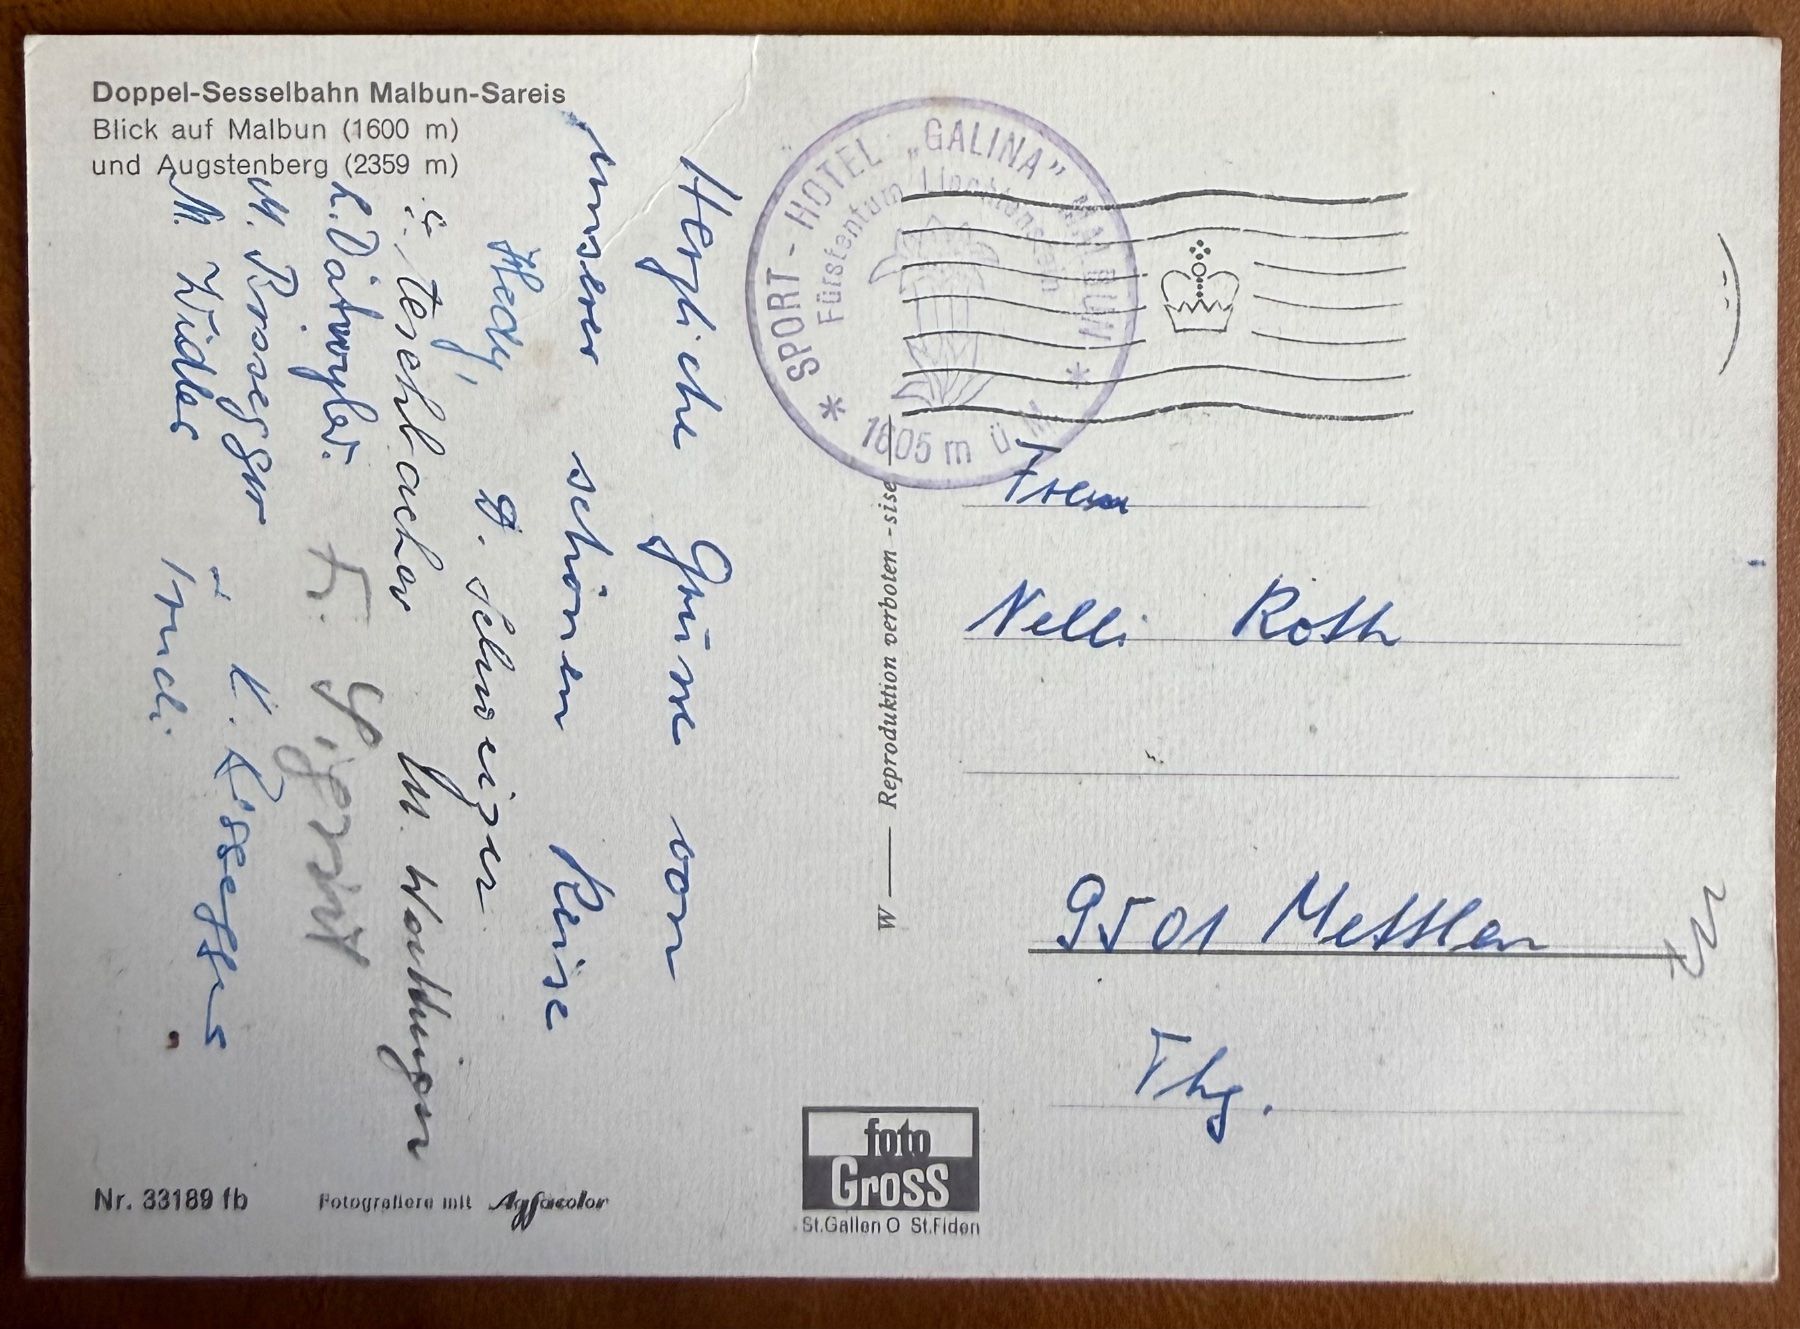 Doppel-Sesselbahn Malbun-Sareis
Blick auf Malbun (1600 m)
und Augstenberg (2359 m)
Herzliche Grüsse von
unserer schönen Reise
Hedy, J. Schweizer
M.
R. Dätwyler. F.
M. K.
M. Widler Trudi
Nr. 33189 fb
Fotografiere mit Agfacolor
SPORT - HOTEL „GALINA" MALBUN
Fürstentum Liechtenstein
1605 m ü. M.
W — Reproduktion verboten - sise
foto
Gross
St.Gallen O St.Fiden
Frau
Nelli Roth
9501 Mettlen
Thg.